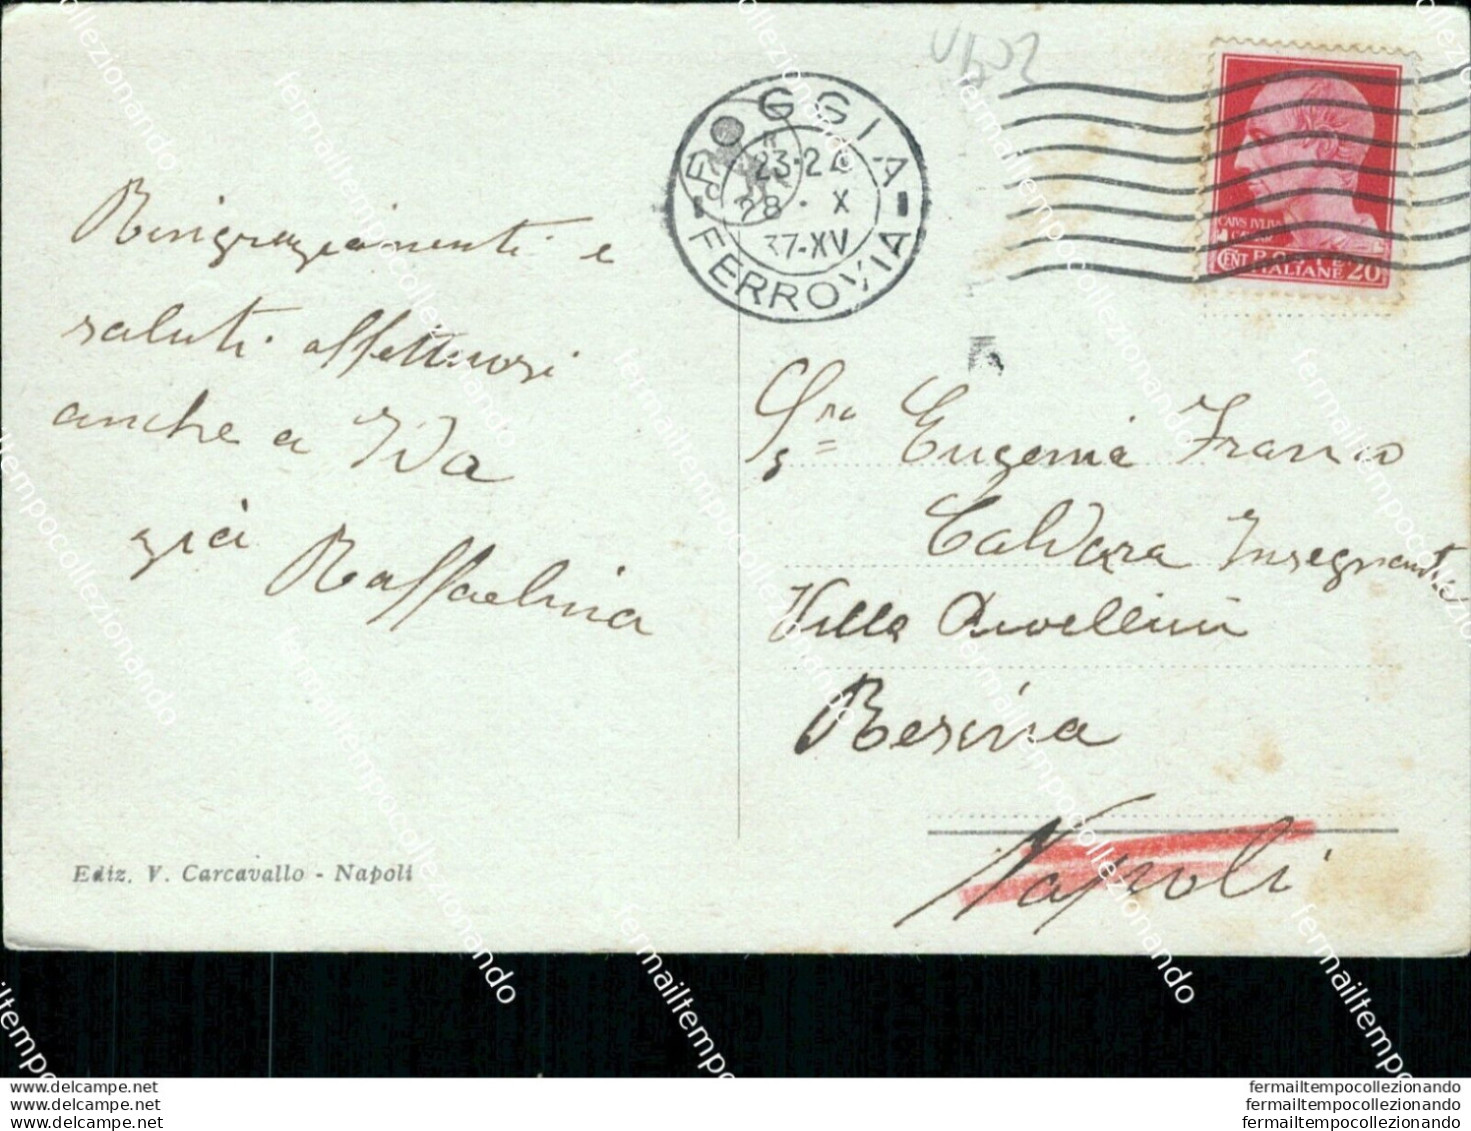 Ub02
FOGGIA
23-24
28 · X
37-XV
FERROVIA
CAIVS IVLIVS
CENT POSTE
ITALIANE 20
Ringraziamenti e
saluti affettuosi
anche a Ida
zia Raffaelina
S.ra Eugenia Franco
Caldara Insegnante
Villa Avellini
Resina
Napoli
Ediz. V. Carcavallo - Napoli
fermailtempocollezionando
www.delcampe.net
www.delcampe.net
www.delcampe.net
fermailtempocollezionando
fermailtempocollezionando
fermailtempocollezionando